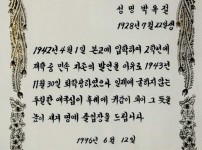 성명 박우전
1928년 7월 22일생
1942년 4월 1일 본교에 입학하여 2학년에
재학중 민족 차온의 발언을 이유로 1943년
11월 30일 퇴학당하였으나 일제에 굴하지 않는
투철한 애국심이 후배에 귀감이 되어 그 뜻을
높이 새겨 명예 졸업장을 드립니다.
1996년 6월 12일